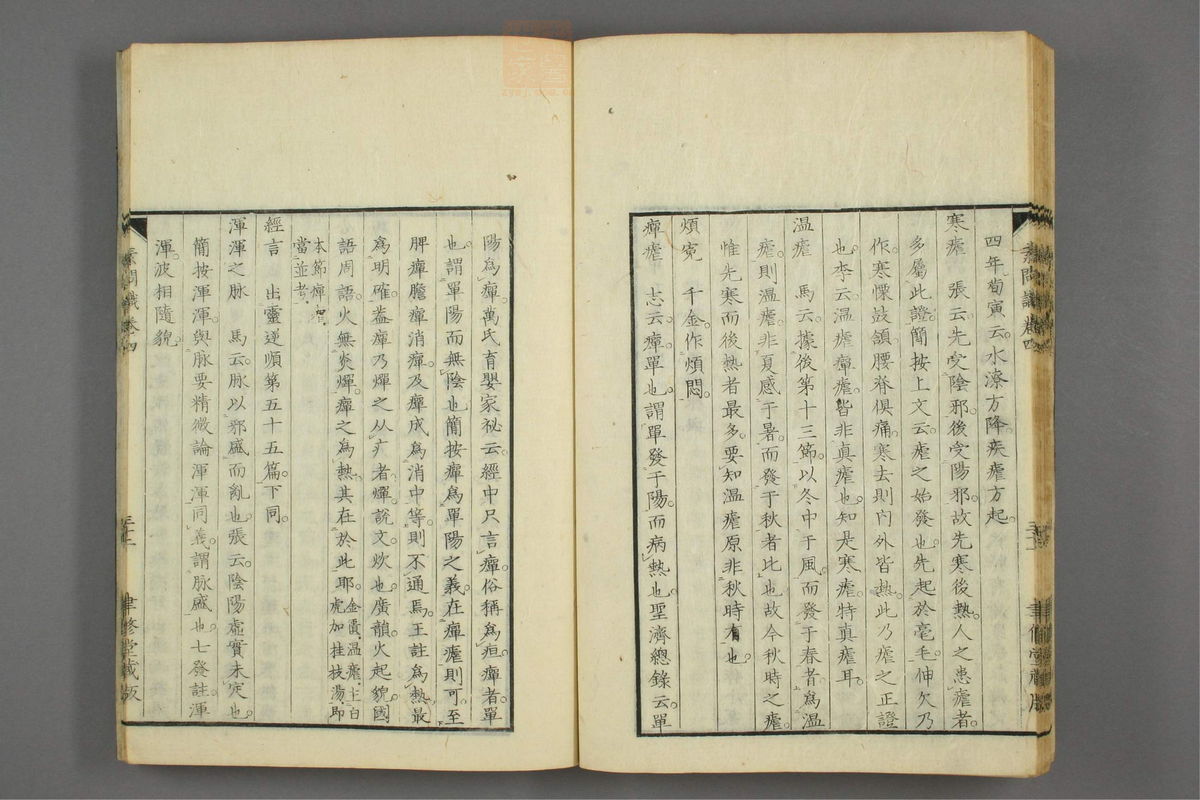 四年荀寅云。水潦方降。疾瘧方起。
寒瘧　張云。先受陰邪。後受陽邪。故先寒後熱。人之患瘧者。
多屬此證。簡按上文云。瘧之始發也。先起於毫毛。伸欠乃
作。寒慄鼓頷。腰脊俱痛。寒去則內外皆熱。此乃瘧之正證
也。李云。溫瘧癉瘧。皆非真瘧也。知是寒瘧。特真瘧耳。
溫瘧　馬云。據後第十三節。以冬中于風。而發于春者。為溫
瘧。則溫瘧。非夏感于暑。而發于秋者比也。故今秋時之瘧。
惟先寒而後熱者最多。要知溫瘧原非秋時有也。
煩冤　千金作煩悶。
癉瘧　志云。癉單也。謂單發于陽。而病熱也。聖濟總錄云。單
陽為癉。萬氏育嬰家祕云。經中只言癉。俗稱為疸。癉者單
也。謂單陽而無陰也。簡按癉為單陽之義。在癉瘧則可。至
脾癉膽癉消癉。及癉成為消中等。則不通焉。王註為熱。最
為明確。蓋癉乃燀之从疒者。燀說文炊也。廣韻。火起貌。國
語周語。火無炎燀。癉之為熱。其在於此耶。金匱。溫瘧。主白虎加桂枝湯。即
本節癉瘧。當並考。
經言　出靈逆順第五十五篇。下同。
渾渾之脉　馬云。脉以邪盛而亂也。張云。陰陽虛實未定也。
簡按渾渾。與脉要精微論渾渾同義。謂脉盛也。七發註。渾
渾。波相隨貌。
素問識卷四
聿修堂藏版